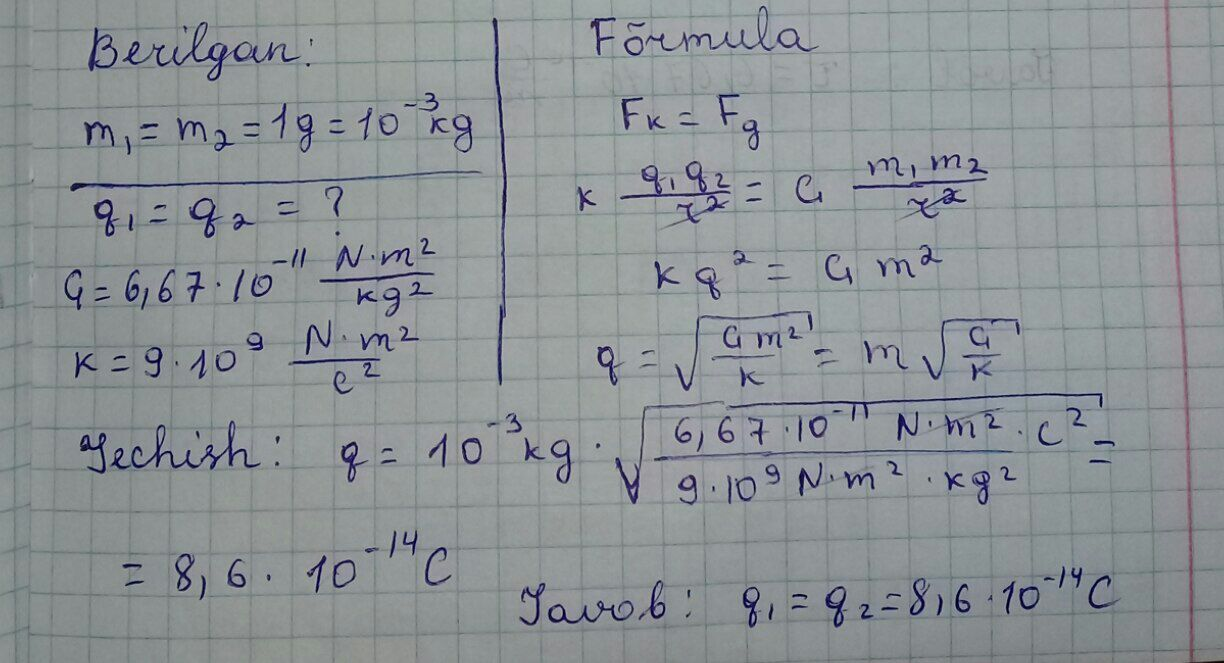 Berilgan:
m₁ = m₂ = 1g = 10⁻³ kg
q₁ = q₂ = ?
G = 6,67 · 10⁻¹¹ N·m²/kg²
k = 9 · 10⁹ N·m²/c²
Fōrmula
Fk = Fg
k q₁q₂/r² = G m₁m₂/r²
kq² = G m²
q = √(Gm²/k) = m √(G/k)
Yechish: q = 10⁻³ kg · √(6,67·10⁻¹¹ N·m² · C² / 9·10⁹ N·m² · kg²) =
= 8,6 · 10⁻¹⁴ C
Javob: q₁ = q₂ = 8,6 · 10⁻¹⁴ C